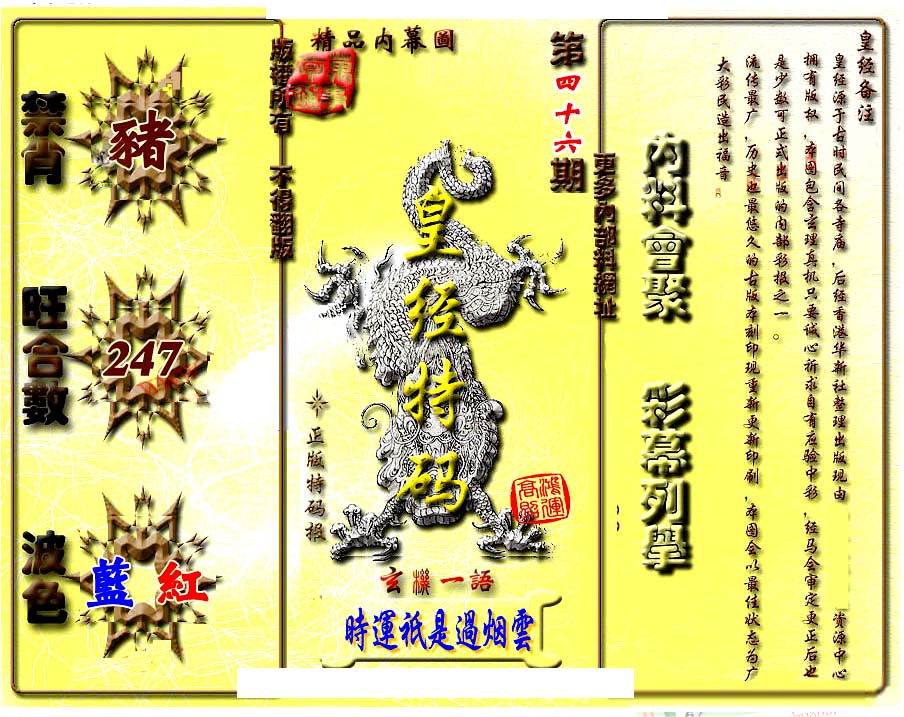 精品內幕圖
第四十六期
版權所有 不得翻版
更多內部料網址
禁肖
豬
旺合數
247
波色
藍 紅
皇经特码
正版特码报
鴻運高照
玄機一語
時運祇是過烟雲
內料會聚
彩幕列舉
皇经备注
皇经源于古时民间各寺庙，后经香港华新社整理出版现由 资源中心
拥有版权，本图包含玄理真机只要诚心祈求自有应验中彩，经马会审定更正后也
是少数可正式出版的内部彩报之一。
流传最广，历史也最悠久的古版本刻印现重新更新印刷，本图会以最佳状态为广
大彩民造出福音